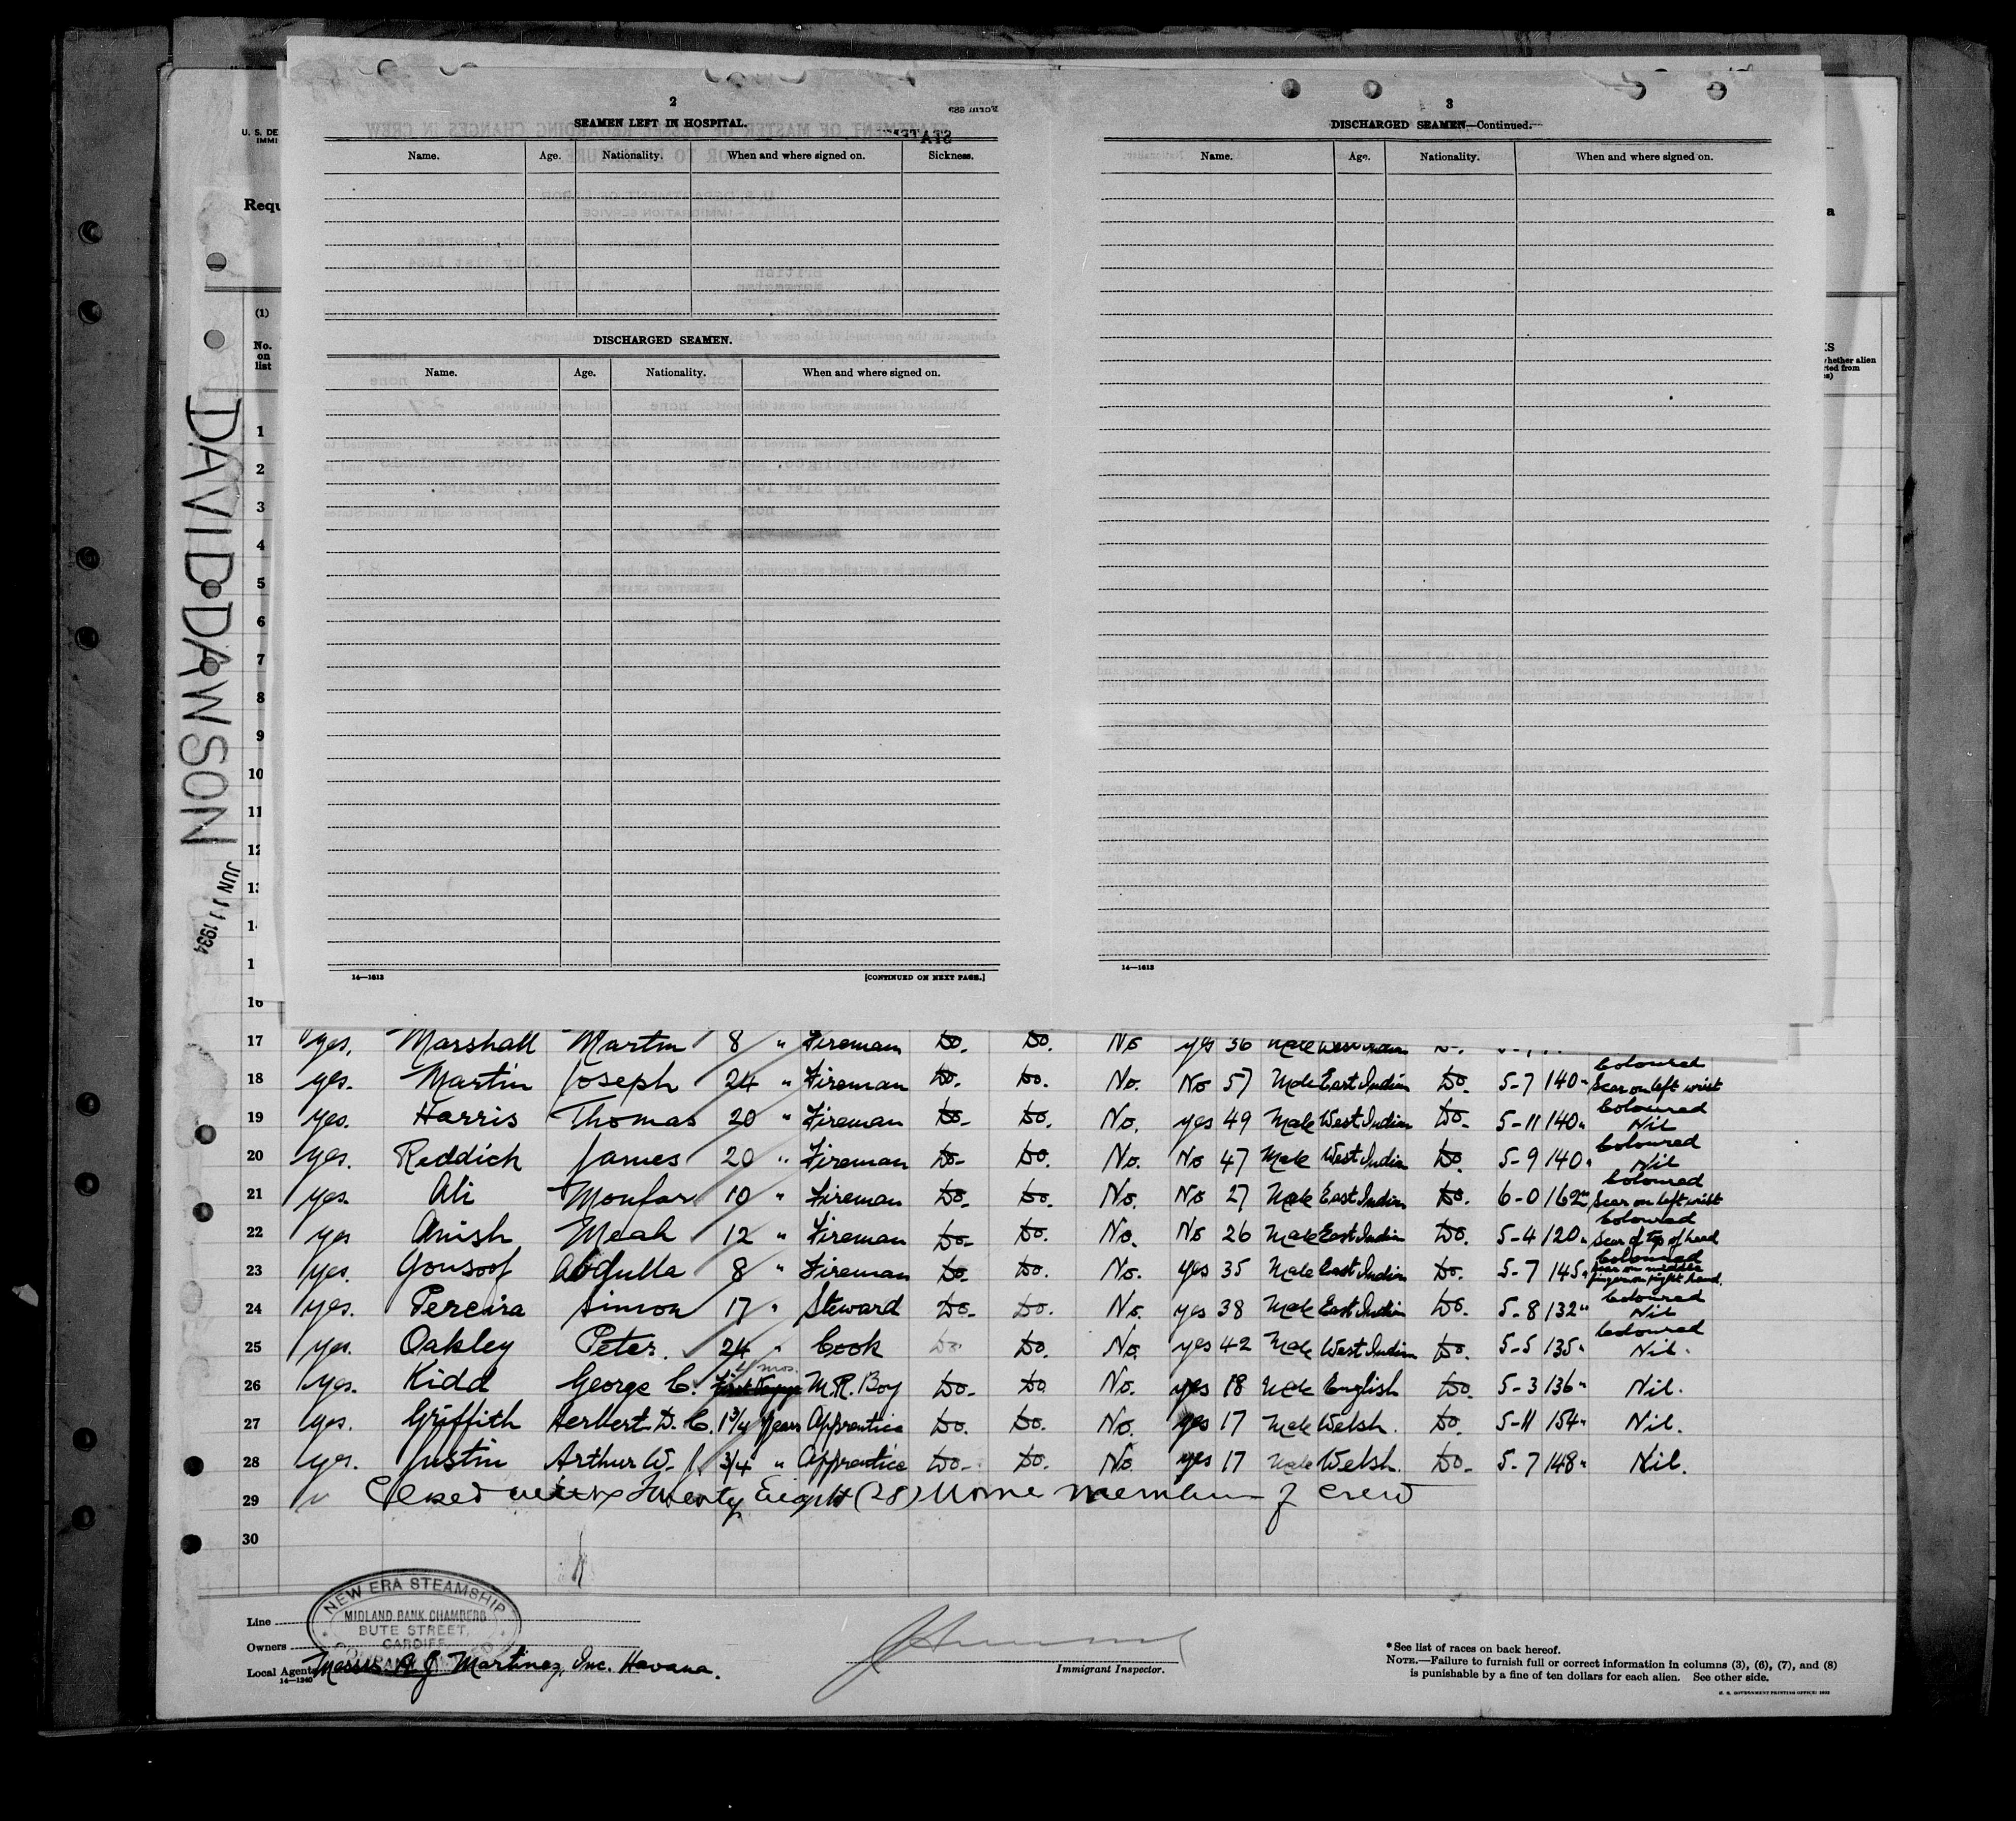 2
SEAMEN LEFT IN HOSPITAL.
Name. Age. Nationality. When and where signed on. Sickness.
DISCHARGED SEAMEN.
Name. Age. Nationality. When and where signed on.
14—1613 [CONTINUED ON NEXT PAGE.]
3
DISCHARGED SEAMEN—Continued.
Name. Age. Nationality. When and where signed on.
14—1613
U. S. DE
IMMI
Requ
(1)
No.
on
list
DAVID DAWSON
JUN 11 1934
1
2
3
4
5
6
7
8
9
10
11
12
16
17 yes. Marshall Martin 8 " Fireman Do. Do. No yes 36 Male West Indian
18 yes. Martin Joseph 24 " Fireman Do. Do. No. No 57 Male East Indian Do. 5-7 140" Coloured Scar on left wrist
19 yes. Harris Thomas 20 " Fireman Do. Do. No. yes 49 Male West Indian Do. 5-11 140" Coloured Nil
20 yes. Reddick James 20 " Fireman Do. Do. No. No 47 Male West Indian Do. 5-9 140" Coloured Nil
21 yes. Ali Monfar 10 " Fireman Do. Do. No. No 27 Male East Indian Do. 6-0 162" Coloured Scar on left wrist
22 yes Anish Meah 12 " Fireman Do. Do. No. No 26 Male East Indian Do. 5-4 120" Coloured Scar of top of head
23 yes. Yousoof Abdulla 8 " Fireman Do. Do. No. yes 35 Male East Indian Do. 5-7 145" Coloured Scar on middle finger on right hand.
24 yes. Pereira Simon 17 " Steward Do. Do. No. yes 38 Male East Indian Do. 5-8 132" Coloured Nil
25 yes. Oakley Peter. 24 " Cook Do. Do. No. yes 42 Male West Indian Do. 5-5 135" Coloured Nil.
26 yes. Kidd George C. mos. M.R. Boy Do. Do No. yes 18 Male English Do. 5-3 136" Nil.
27 yes. Griffith Herbert D. C. 1 3/4 years Apprentice Do. Do. No. yes 17 Male Welsh. Do. 5-11 154" Nil.
28 yes. Justin Arthur W. J. 3/4 " Apprentice Do. Do. No. yes 17 Male Welsh. Do. 5-7 148" Nil.
29 Closed Twenty Eight (28) members of crew
30
NEW ERA STEAMSHIP
MIDLAND BANK CHAMBERS
BUTE STREET,
CARDIFF
Line
Owners
Local Agents Messrs A J Martinez, Inc. Havana.
14—1240
Immigrant Inspector.
*See list of races on back hereof.
NOTE.—Failure to furnish full or correct information in columns (3), (6), (7), and (8)
is punishable by a fine of ten dollars for each alien. See other side.
U. S. GOVERNMENT PRINTING OFFICE